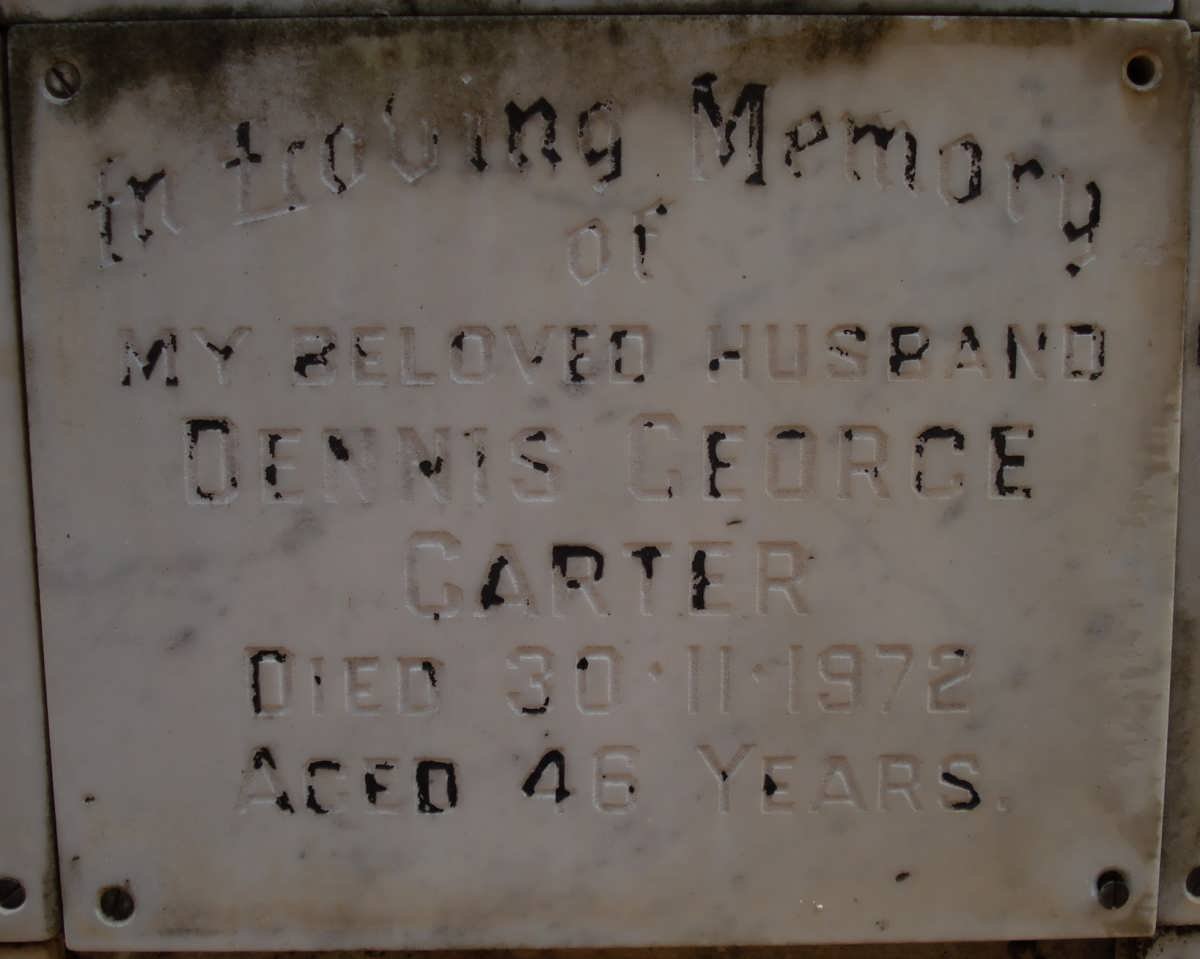 In Loving Memory
of
MY BELOVED HUSBAND
DENNIS GEORGE
CARTER
DIED 30·11·1972
AGED 46 YEARS.